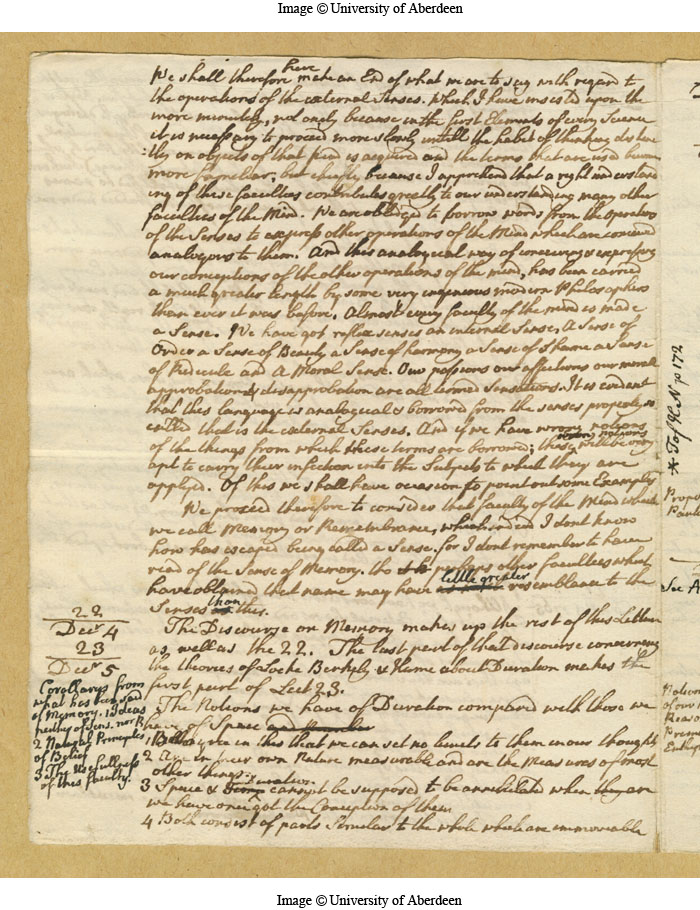 Image © University of Aberdeen
We shall therefore here make an End of what we are to say with regard to
the operations of the external Senses. Which I have insisted upon the
more minutely, not onely because in the first Elements of every Science
it is necessary to proceed more slowly untill the habit of thinking distinc
tly on objects of that kind is acquired and the terms that are used become
more familiar, but chiefly because I apprehend that a right understand
ing of these faculties contributes greatly to our understanding many other
faculties of the Mind. We are obliged to borrow words from the operations
of the Senses to express other operations of the Mind which are conceived
analogous to them. And this analogical way of conceiving & expressing
our conceptions of the other operations of the mind, has been carried
a much greater length by some very ingenious modern Philosophers
than ever it was before. Almost every faculty of the mind is made
a Sense. We have got reflex senses an internal Sense, A Sense of
Order a Sense of Beauty a Sense of harmony a Sense of Shame a Sense
of Ridicule and A Moral Sense. Our passions our affections our moral
approbation & disapprobation are all termed Sensations. It is evident
that this language is analogical & borrowed from the senses properly so
called that is the external Senses. And if we have wrong notions
of the things from which these terms are borrowed; those wrong notions will be very
apt to carry their infection into the Subjects to which they are
applyed. Of this we shall have occasion to point out some Examples
We proceed therefore to consider that faculty of the Mind which
we call Memory or Remembrance, which indeed I dont know
how has escaped being called a Sense. for I dont remember to have
read of the Sense of Memory. tho perhaps other faculties which
have obtained that name may have little greater resemblance to the
Senses than this.
The Discourse on Memory makes up the rest of this Lecture
as, well as the 22. The last part of that discourse concerning
the theories of Locke Berkely & Hume about Duration makes the
first part of Lect 23.
The Notions we have of Duration compared with those we
have of Space
1 Both agree in this that we can set no limits to them in our thought
2 Are in their own Nature measurable and are the Measures of most
other things.
3 Space & Duration cannot be supposed to be annihilated when they are
we have once got the Conception of them
4 Both consist of parts Similar to the whole which are immoveable
22
Decr 4
23
Decr 5
Corollarys from
what has been said
of Memory. 1 Ideas
neither of Sens. nor R.
2 Natural Principles
of Belief
3 The Usefullness
of this faculty.
p 172
See A
Image © University of Aberdeen